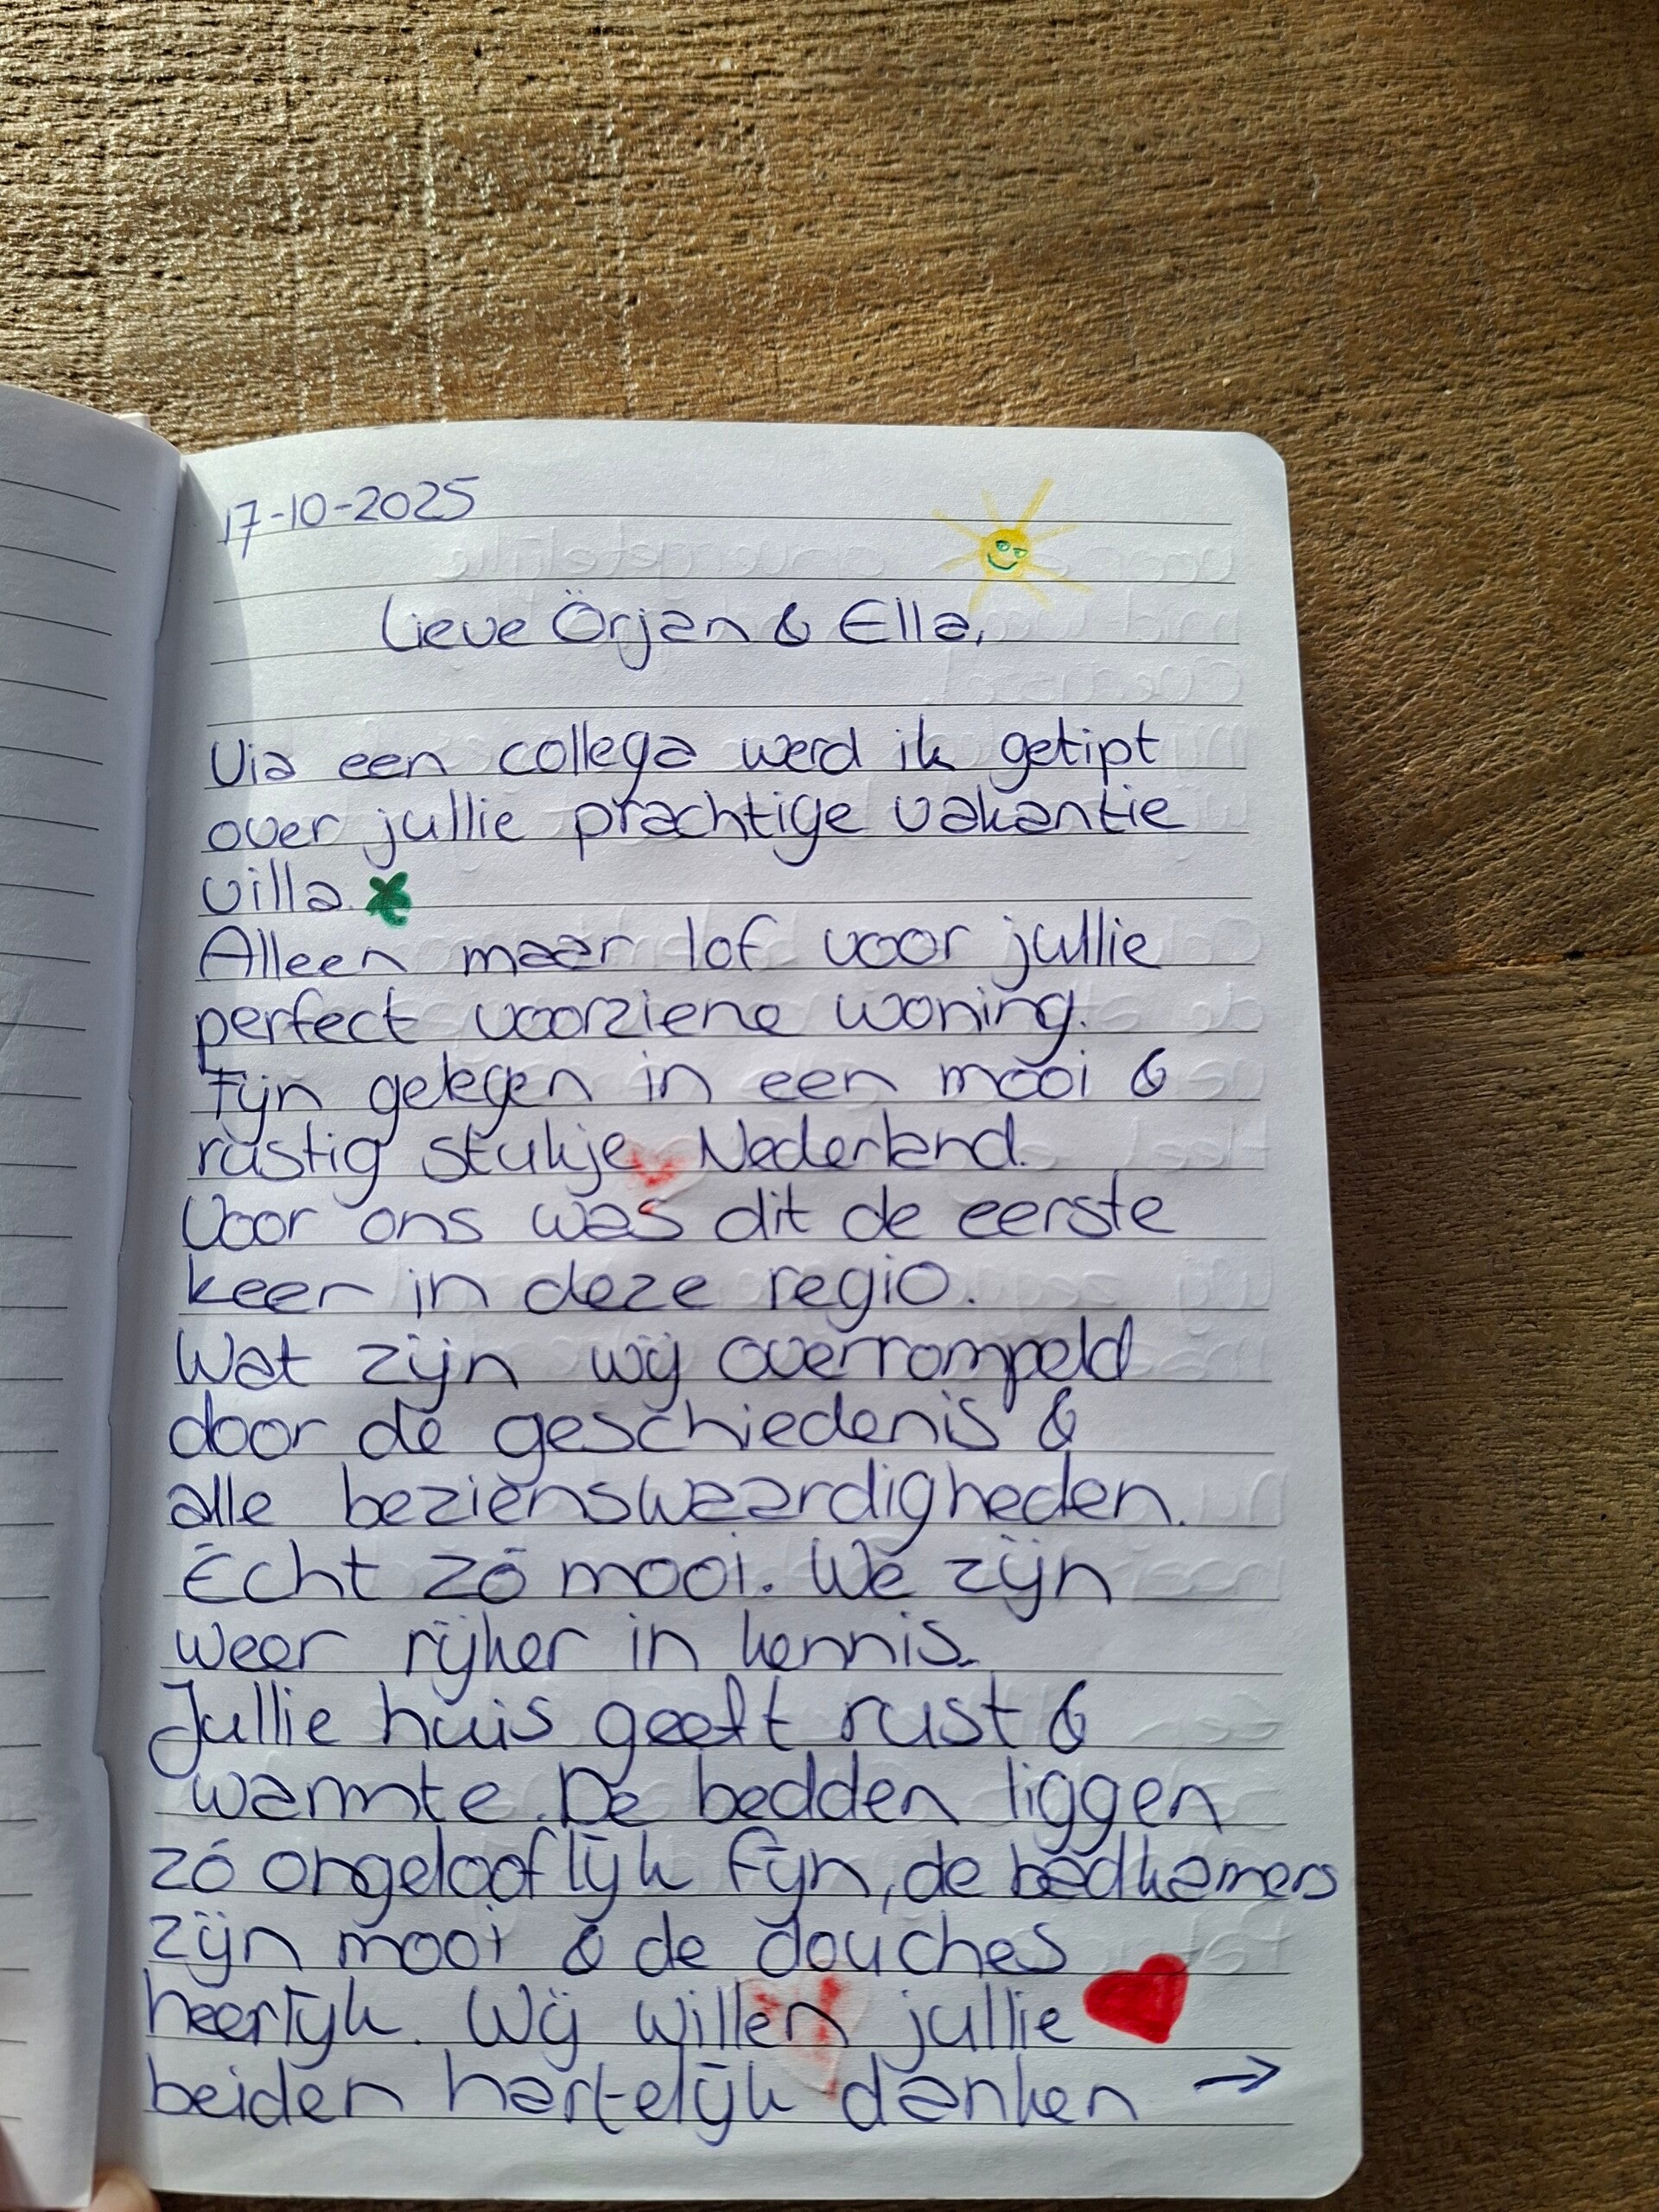 17-10-2025
Lieve Örjan & Ella,
Via een collega werd ik getipt
over jullie prachtige vakantie
villa.
Alleen maar lof voor jullie
perfect voorziene woning.
Fijn gelegen in een mooi &
rustig stukje Nederland.
Voor ons was dit de eerste
keer in deze regio.
Wat zijn wij overrompeld
door de geschiedenis &
alle bezienswaardigheden.
Echt zó mooi. We zijn
weer rijker in kennis.
Jullie huis geeft rust &
warmte. De bedden liggen
zó ongelooflijk fijn, de badkamers
zijn mooi & de douches
heerlijk. Wij willen jullie
beiden hartelijk danken →